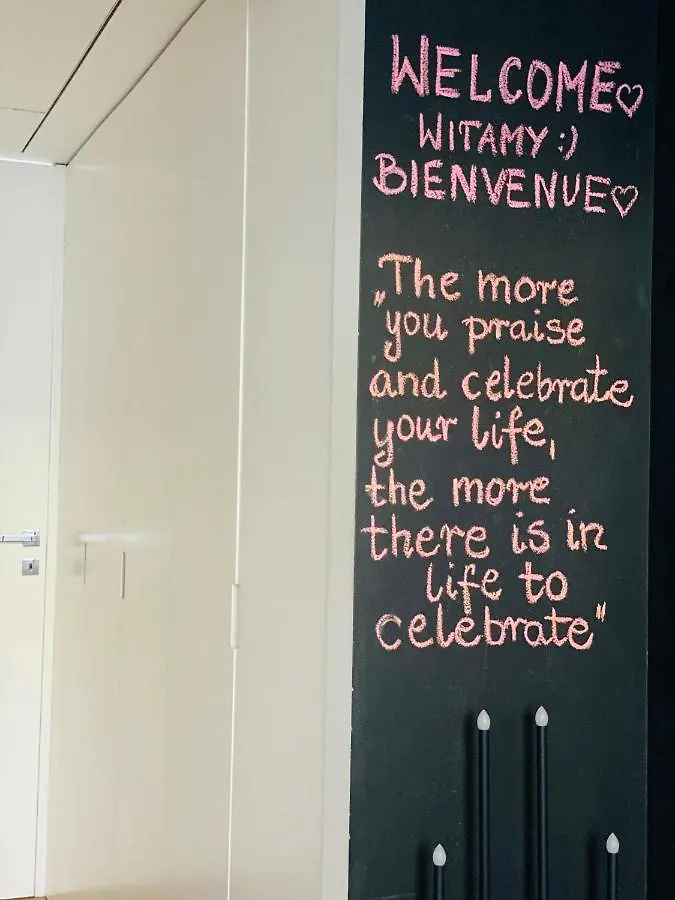 WELCOME♡
WITAMY :)
BIENVENUE♡
„The more
you praise
and celebrate
your life,
the more
there is in
life to
celebrate"